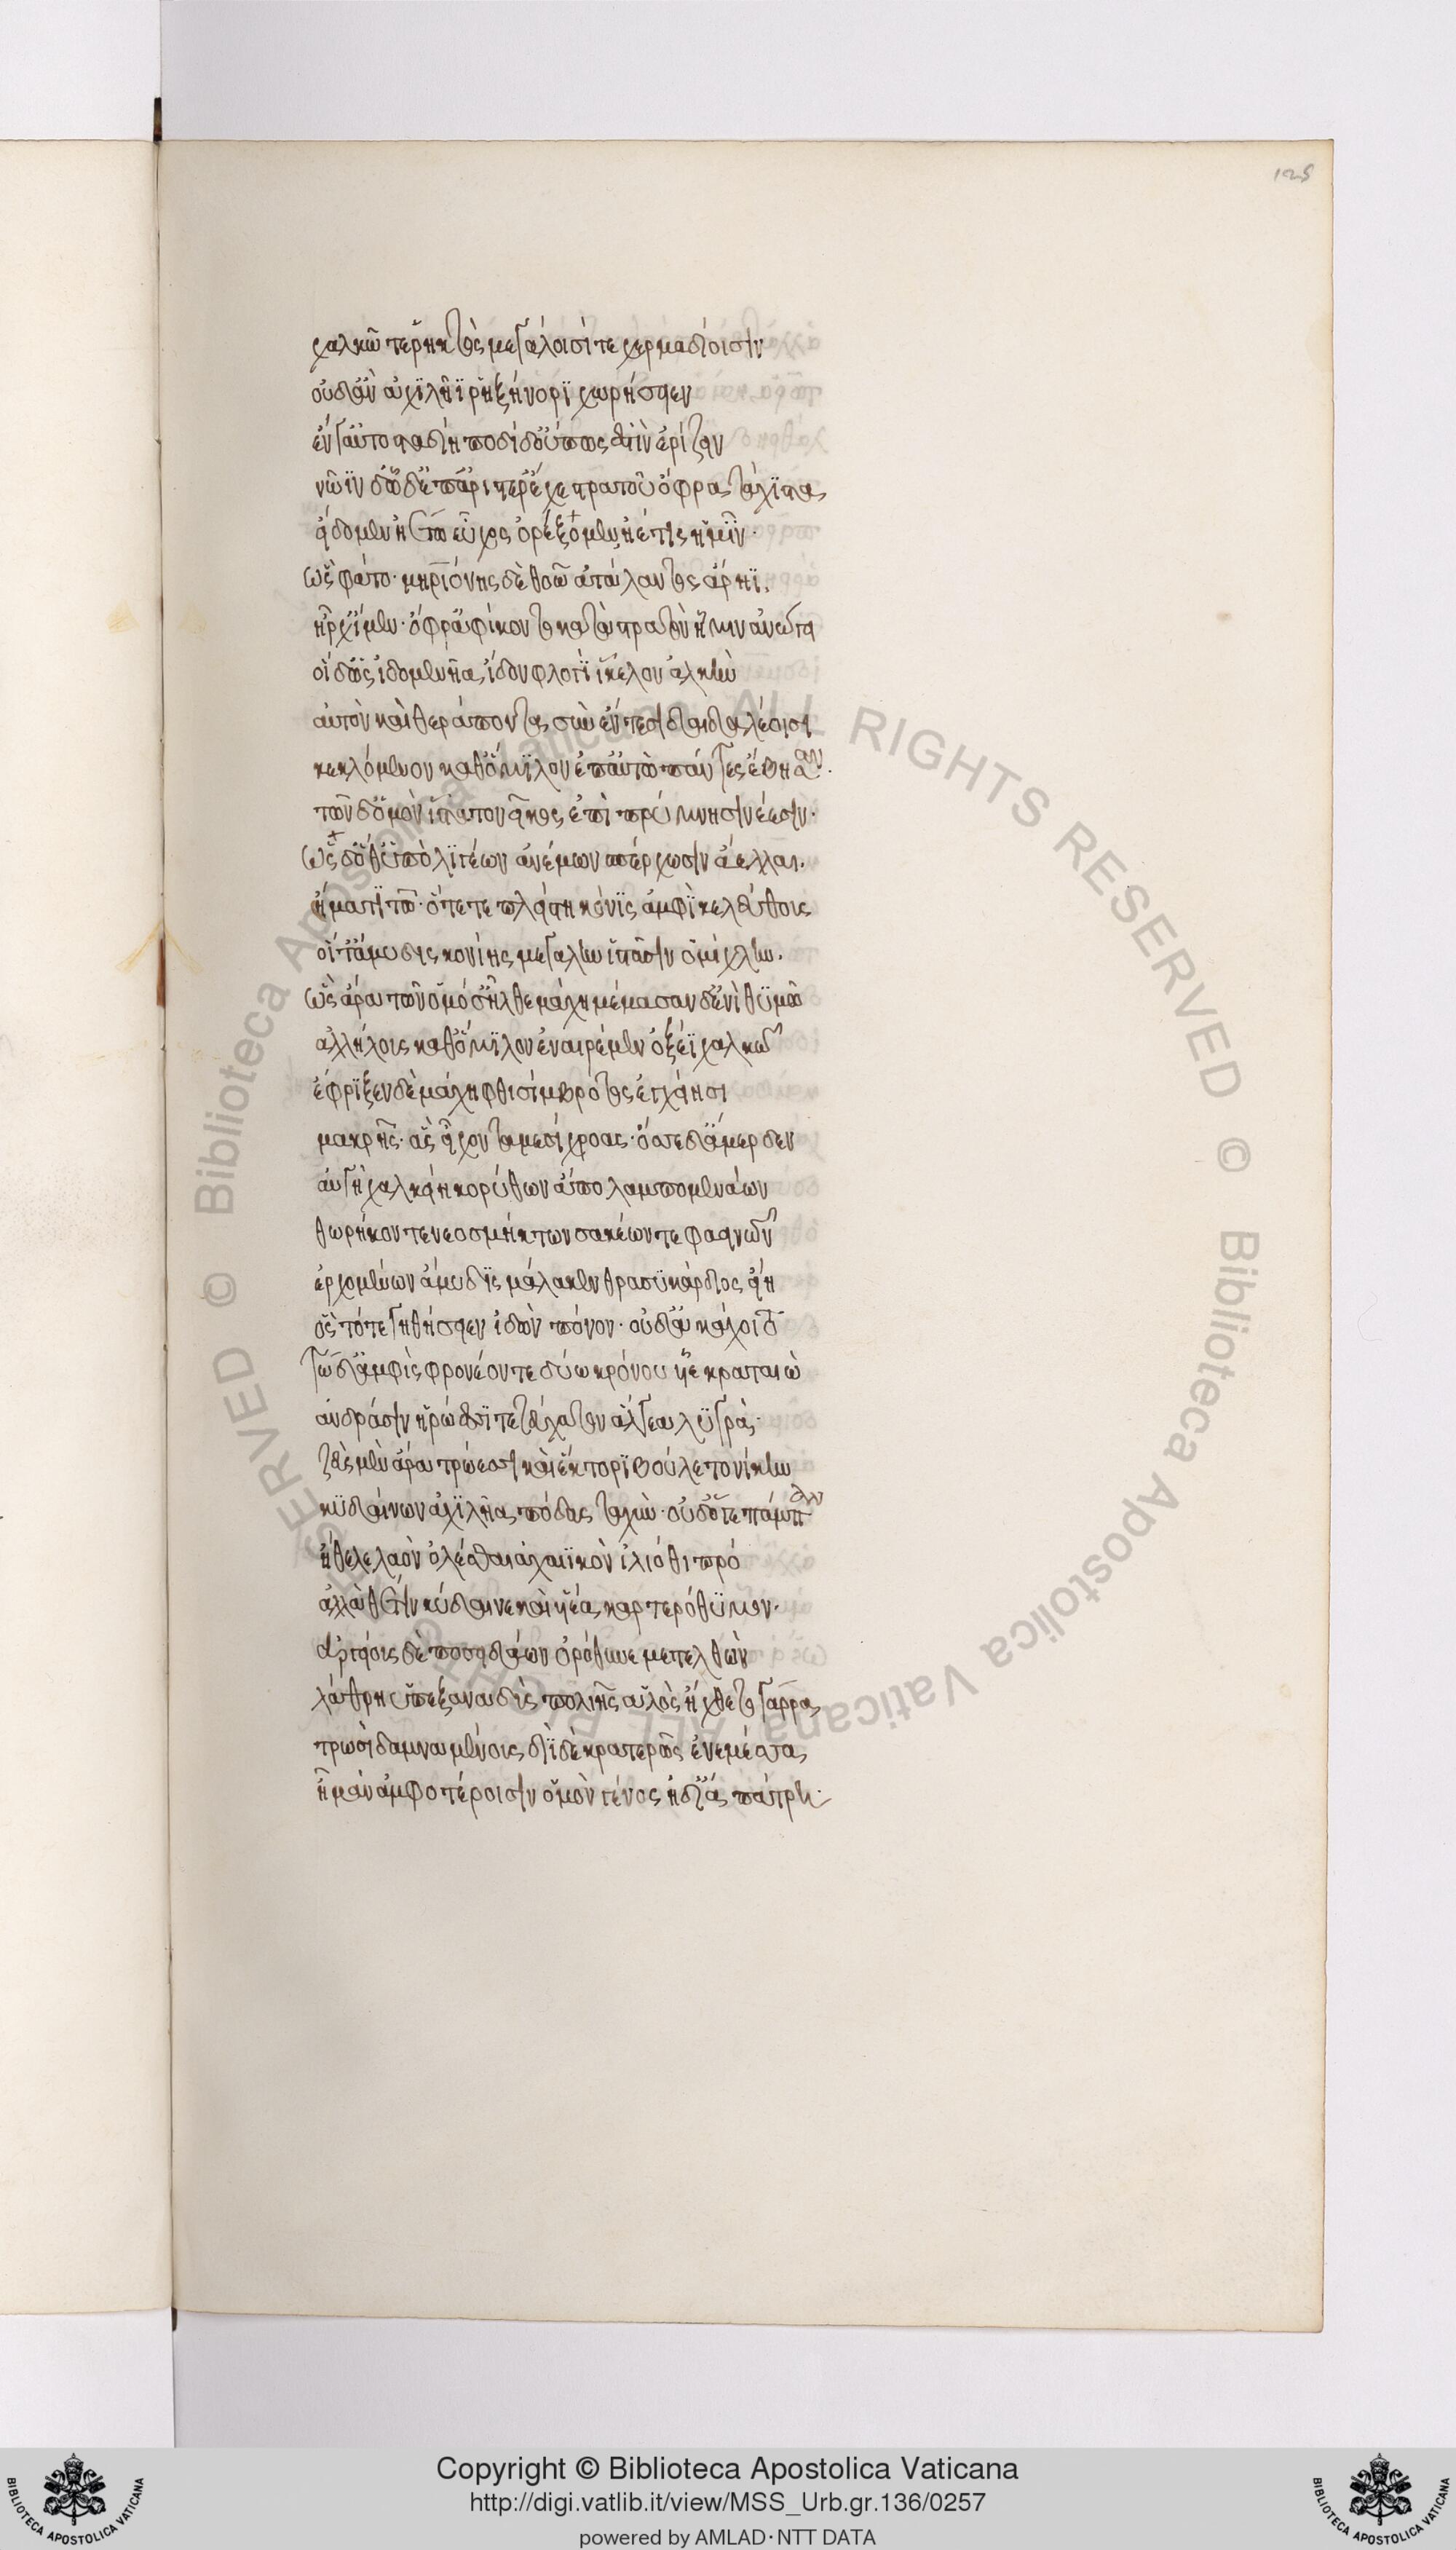 125
χαλκῶ τε ῥηκτὸς μεγάλοισί τε χερμαδίοισιν
οὐδ' ἂν ἀχιλῆϊ ῥηξήνορι χωρήσειεν
ἔν γ' αὐτοσταδίη ποσὶ δ' οὔπως ἔστιν ἐρίζειν
νῶϊν δ' ὧδ' ἐπ' ἀρίστερ' ἔχε στρατοῦ ὄφρα τάχιστα
εἴδομεν ἠέ τω εὖχος ὀρέξομεν ἠέ τις ἡμῖν·
ὣς φάτο· μηριόνης δὲ θοῶ ἀτάλαντος ἄρηϊ.
ἦρχ' ἴμεν· ὄφρ' ἀφίκοντο κατὰ στρατὸν ᾗ μιν ἀνώγει
οἱ δ' ὡς ἰδομενῆα ἴδον φλογὶ ἴκελον ἀλκὴν
αὐτὸν καὶ θεράποντα σὺν ἔντεσι δαιδαλέοισι
κεκλόμενοι καθ' ὅμιλον ἐπ' αὐτῶ πάντες ἔβησαν.
τῶν δ' ὁμὸν ἵστατο νεῖκος ἐπὶ πρύμνησι νέεσιν·
ὡς δ' ὅθ' ὑπὸ λιγέων ἀνέμων σπέρχωσιν ἄελλαι.
ἤματι τῶ· ὅτε τε πλείστη κόνις ἀμφὶ κελεύθοις
οἵ τ' ἄμυδις κονίης μεγάλην ἱστᾶσιν ὁμίχλην.
ὣς ἄρα τῶν ὁμόσ' ἦλθε μάχη μέμασαν δ' ἐνὶ θυμῶ
ἀλλήλοις καθ' ὅμιλον ἐναιρέμεν ὀξέϊ χαλκῶ
ἔφριξεν δὲ μάχη φθισίμβροτος ἐγχείησι
μακρῆς· ἃς εἶχον ταμεσίχροας· ὄσσε δ' ἄμερδεν
αὐγὴ χαλκείη κορύθων ἄπο λαμπομενάων
θωρήκων τε νεοσμήκτων σακέων τε φαεινῶν
ἐρχομένων ἄμυδις μάλα κεν θρασυκάρδιος εἴη
ὃς τότε γηθήσειεν ἰδὼν πόνον· οὐδ' ἀκάχοιτο
τὼ δ' ἀμφὶς φρονέοντε δύω κρόνου υἷε κραταιὼ
ἀνδράσιν ἡρώεσσι τετεύχατον ἄλγεα λυγρά·
ζεὺς μὲν ἄρα τρώεσσι καὶ ἕκτορι βούλετο νίκην
κυδαίνων ἀχιλῆα πόδας ταχὺν· οὐδ' ὅγε πάμπαν
ἤθελε λαὸν ὀλέσθαι ἀχαιϊκὸν ἰλιόθι πρό
ἀλλὰ θέτιν κύδαινε καὶ υἱέα καρτερόθυμον·
ἀργείοις δὲ ποσειδάων ὀρόθυνε μετελθὼν
λάθρη ὑπεξαναδὺς πολιῆς ἁλὸς ἤχθετο γάρ ῥα
τρωσὶ δαμναμένοις διῒ δὲ κρατερῶς ἐνεμέσσα
ἦ μὰν ἀμφοτέροισιν ὁμὸν γένος ἠδ' ἴα πάτρη·
Copyright © Biblioteca Apostolica Vaticana
http://digi.vatlib.it/view/MSS_Urb.gr.136/0257
powered by AMLAD·NTT DATA